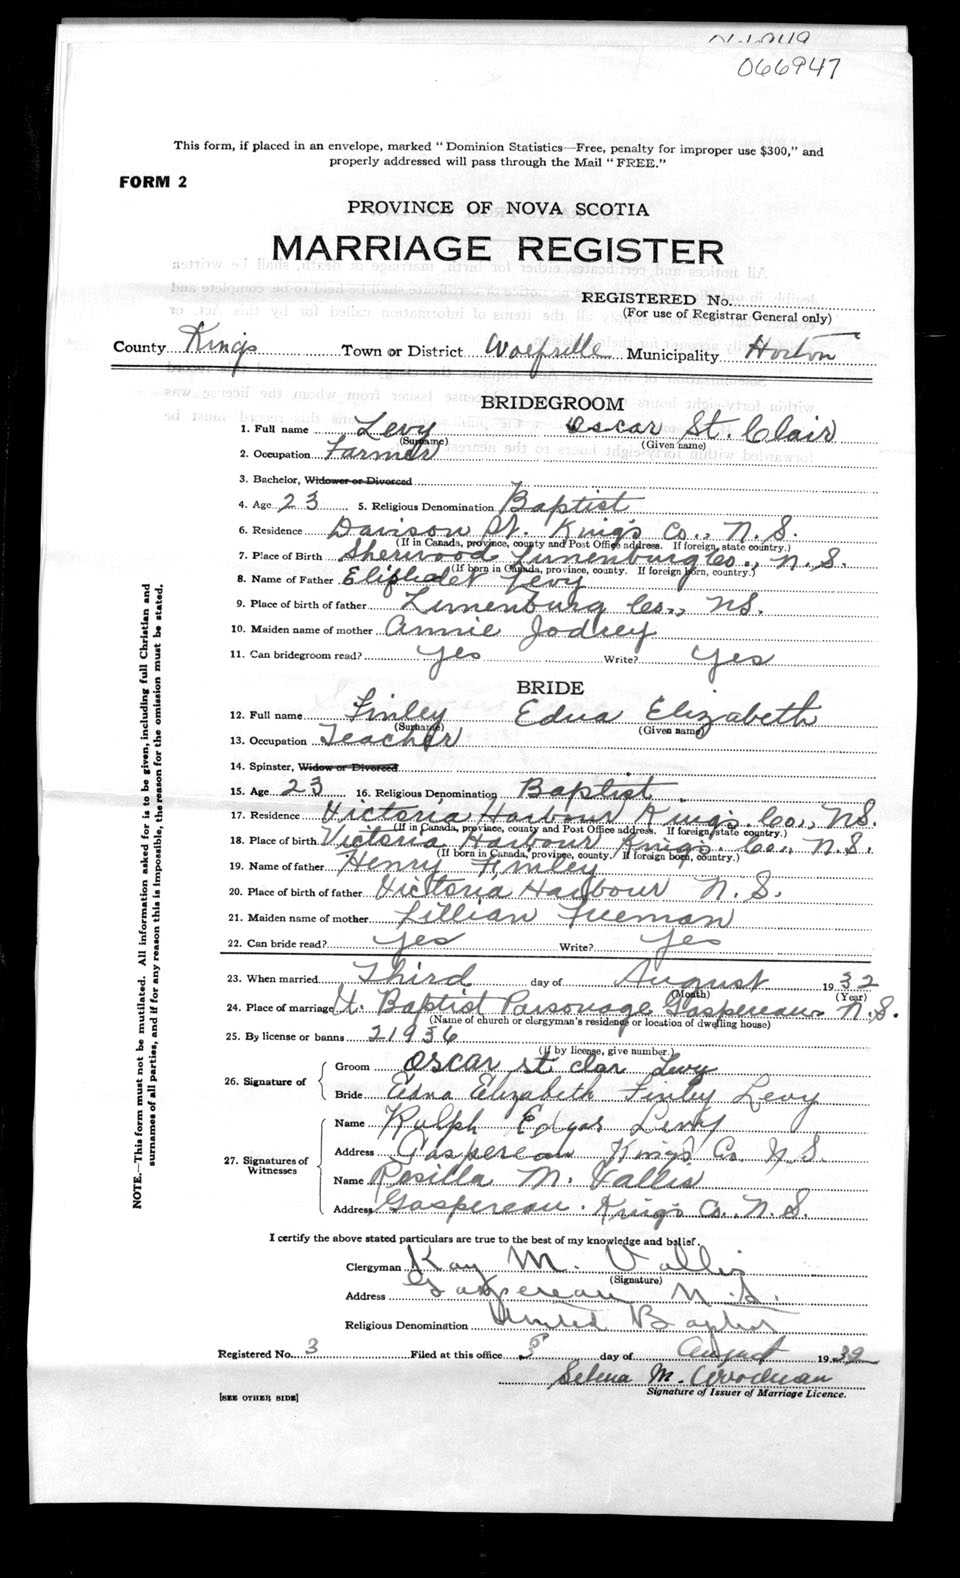 066947
This form, if placed in an envelope, marked " Dominion Statistics—Free, penalty for improper use $300," and
properly addressed will pass through the Mail " FREE."
FORM 2
PROVINCE OF NOVA SCOTIA
MARRIAGE REGISTER
REGISTERED No.
(For use of Registrar General only)
County Kings Town or District Wolfville Municipality Horton
BRIDEGROOM
1. Full name Levy Oscar St. Clair
(Surname) (Given name)
2. Occupation Farmer
3. Bachelor, Widower or Divorced
4. Age 23 5. Religious Denomination Baptist
6. Residence Davison St. King's Co., N.S.
(If in Canada, province, county and Post Office address. If foreign, state country.)
7. Place of Birth Sherwood Lunenburg Co., N.S.
(If born in Canada, province, county. If foreign born, country.)
8. Name of Father Eliphalet Levy
9. Place of birth of father Lunenburg Co., NS.
10. Maiden name of mother Annie Jodrey
11. Can bridegroom read? yes Write? yes
BRIDE
12. Full name Finley Edna Elizabeth
(Surname) (Given name)
13. Occupation Teacher
14. Spinster, Widow or Divorced
15. Age 23 16. Religious Denomination Baptist
17. Residence Victoria Harbour King's Co., NS.
(If in Canada, province, county and Post Office address. If foreign, state country.)
18. Place of birth Victoria Harbour King's Co., N.S.
(If born in Canada, province, county. If foreign born, country.)
19. Name of father Henry Finley
20. Place of birth of father Victoria Harbour N.S.
21. Maiden name of mother Lillian Freeman
22. Can bride read? yes Write? yes
23. When married Third day of August 1932
(Month) (Year)
24. Place of marriage Baptist Parsonage Gaspereau N.S.
(Name of church or clergyman's residence or location of dwelling house)
25. By license or banns 21936
(If by license, give number.)
26. Signature of
Groom Oscar st clair Levy
Bride Edna Elizabeth Finley Levy
27. Signatures of Witnesses
Name Ralph Edgar Levy
Address Gaspereau King's Co. N.S.
Name M. Vallis
Address Gaspereau. King's Co. N.S.
I certify the above stated particulars are true to the best of my knowledge and belief.
Clergyman Ray M. Vallis
(Signature)
Address Gaspereau N.S.
Religious Denomination United Baptist
Registered No. 3 Filed at this office 5 day of August 1932
Selena M. Woodman
Signature of Issuer of Marriage Licence.
[SEE OTHER SIDE]
NOTE.—This form must not be mutilated. All information asked for is to be given, including full Christian and
surnames of all parties, and if for any reason this is impossible, the reason for the omission must be stated.